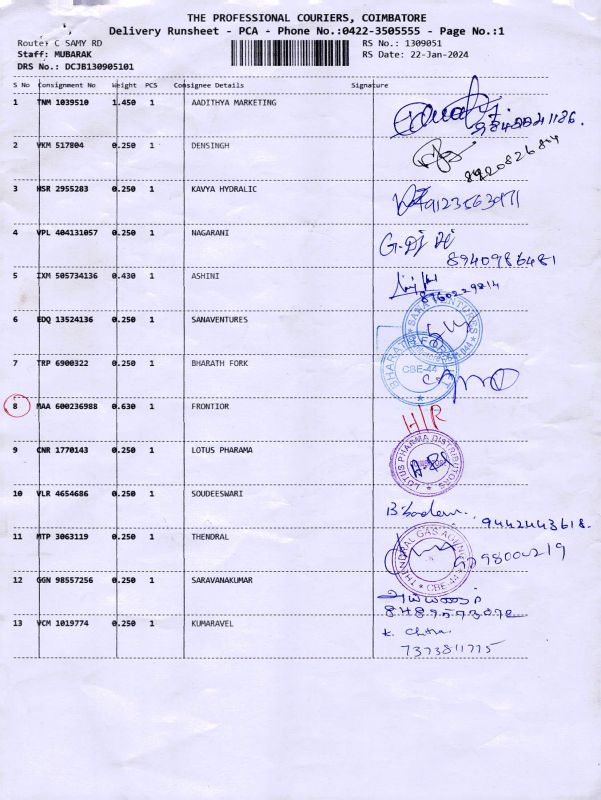 THE PROFESSIONAL COURIERS, COIMBATORE
Delivery Runsheet - PCA - Phone No.:0422-3505555 - Page No.:1
Route: C SAMY RD
RS No.: 1309051
Staff: MUBARAK
RS Date: 22-Jan-2024
DRS No.: DCJB130905101
S No Consignment No Weight PCS Consignee Details Signature
1 TNM 1039510 1.450 1 AADITHYA MARKETING
2 VKM 517804 0.250 1 DENSINGH
3 HSR 2955283 0.250 1 KAVYA HYDRALIC
4 VPL 404131057 0.250 1 NAGARANI
8940986481
5 IXM 505734136 0.430 1 ASHINI
8760229814
6 EDQ 13524136 0.250 1 SANAVENTURES
7 TRP 6900322 0.250 1 BHARATH FORK
CBE-44
8 MAA 600236988 0.630 1 FRONTIOR H/R
9 CNR 1770143 0.250 1 LOTUS PHARAMA
LOTUS PHARMA DISTRIBUTORS
10 VLR 4654686 0.250 1 SOUDEESWARI
9442443618.
11 MTP 3063119 0.250 1 THENDRAL
THENDRAL GAS AGENCY CBE-44
12 GGN 98557256 0.250 1 SARAVANAKUMAR
13 VCM 1019774 0.250 1 KUMARAVEL
K. Chitra
7373811775